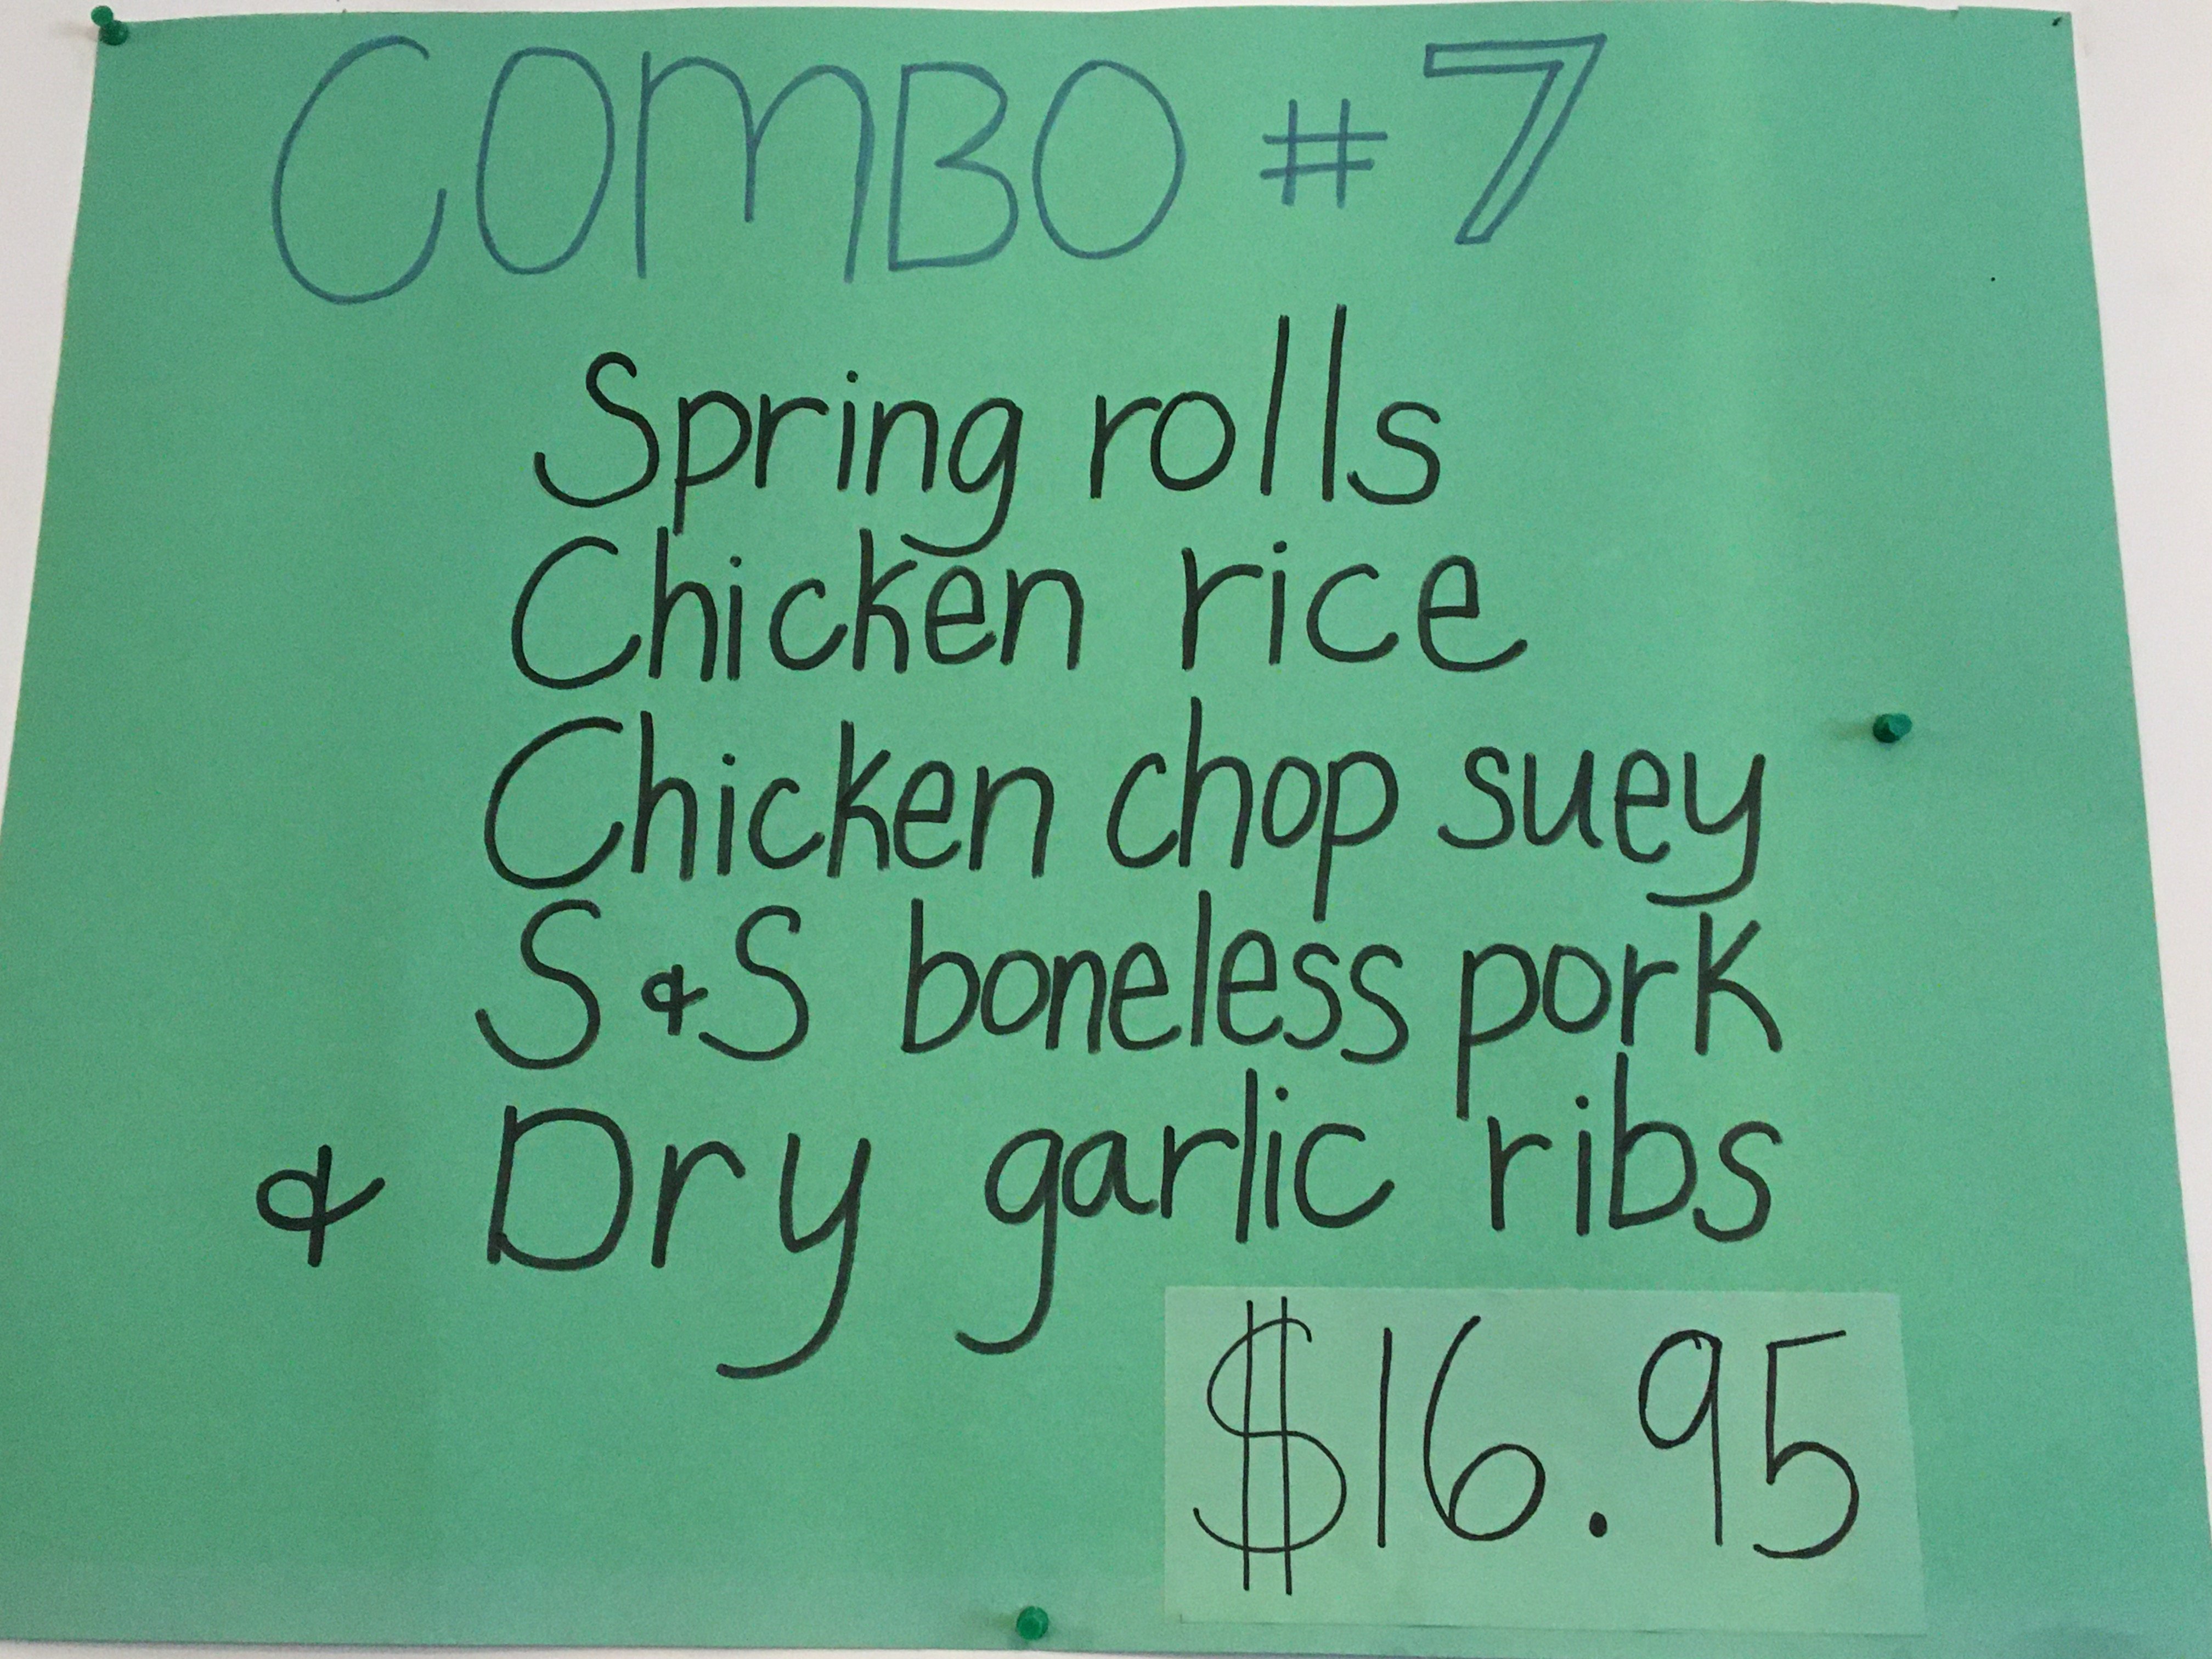 COMBO #7
Spring rolls
Chicken rice
Chicken chop suey
S & S boneless pork
& Dry garlic ribs
$16.95